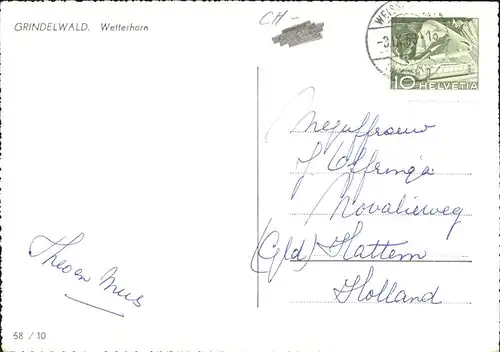 GRINDELWALD. Wetterhorn
CH-
WEISS
-3.
10
HELVETIA
Mejuffrouw
J Offringa
Novalieweg
(Gld) Hattem
Holland
Theo en
58 / 10